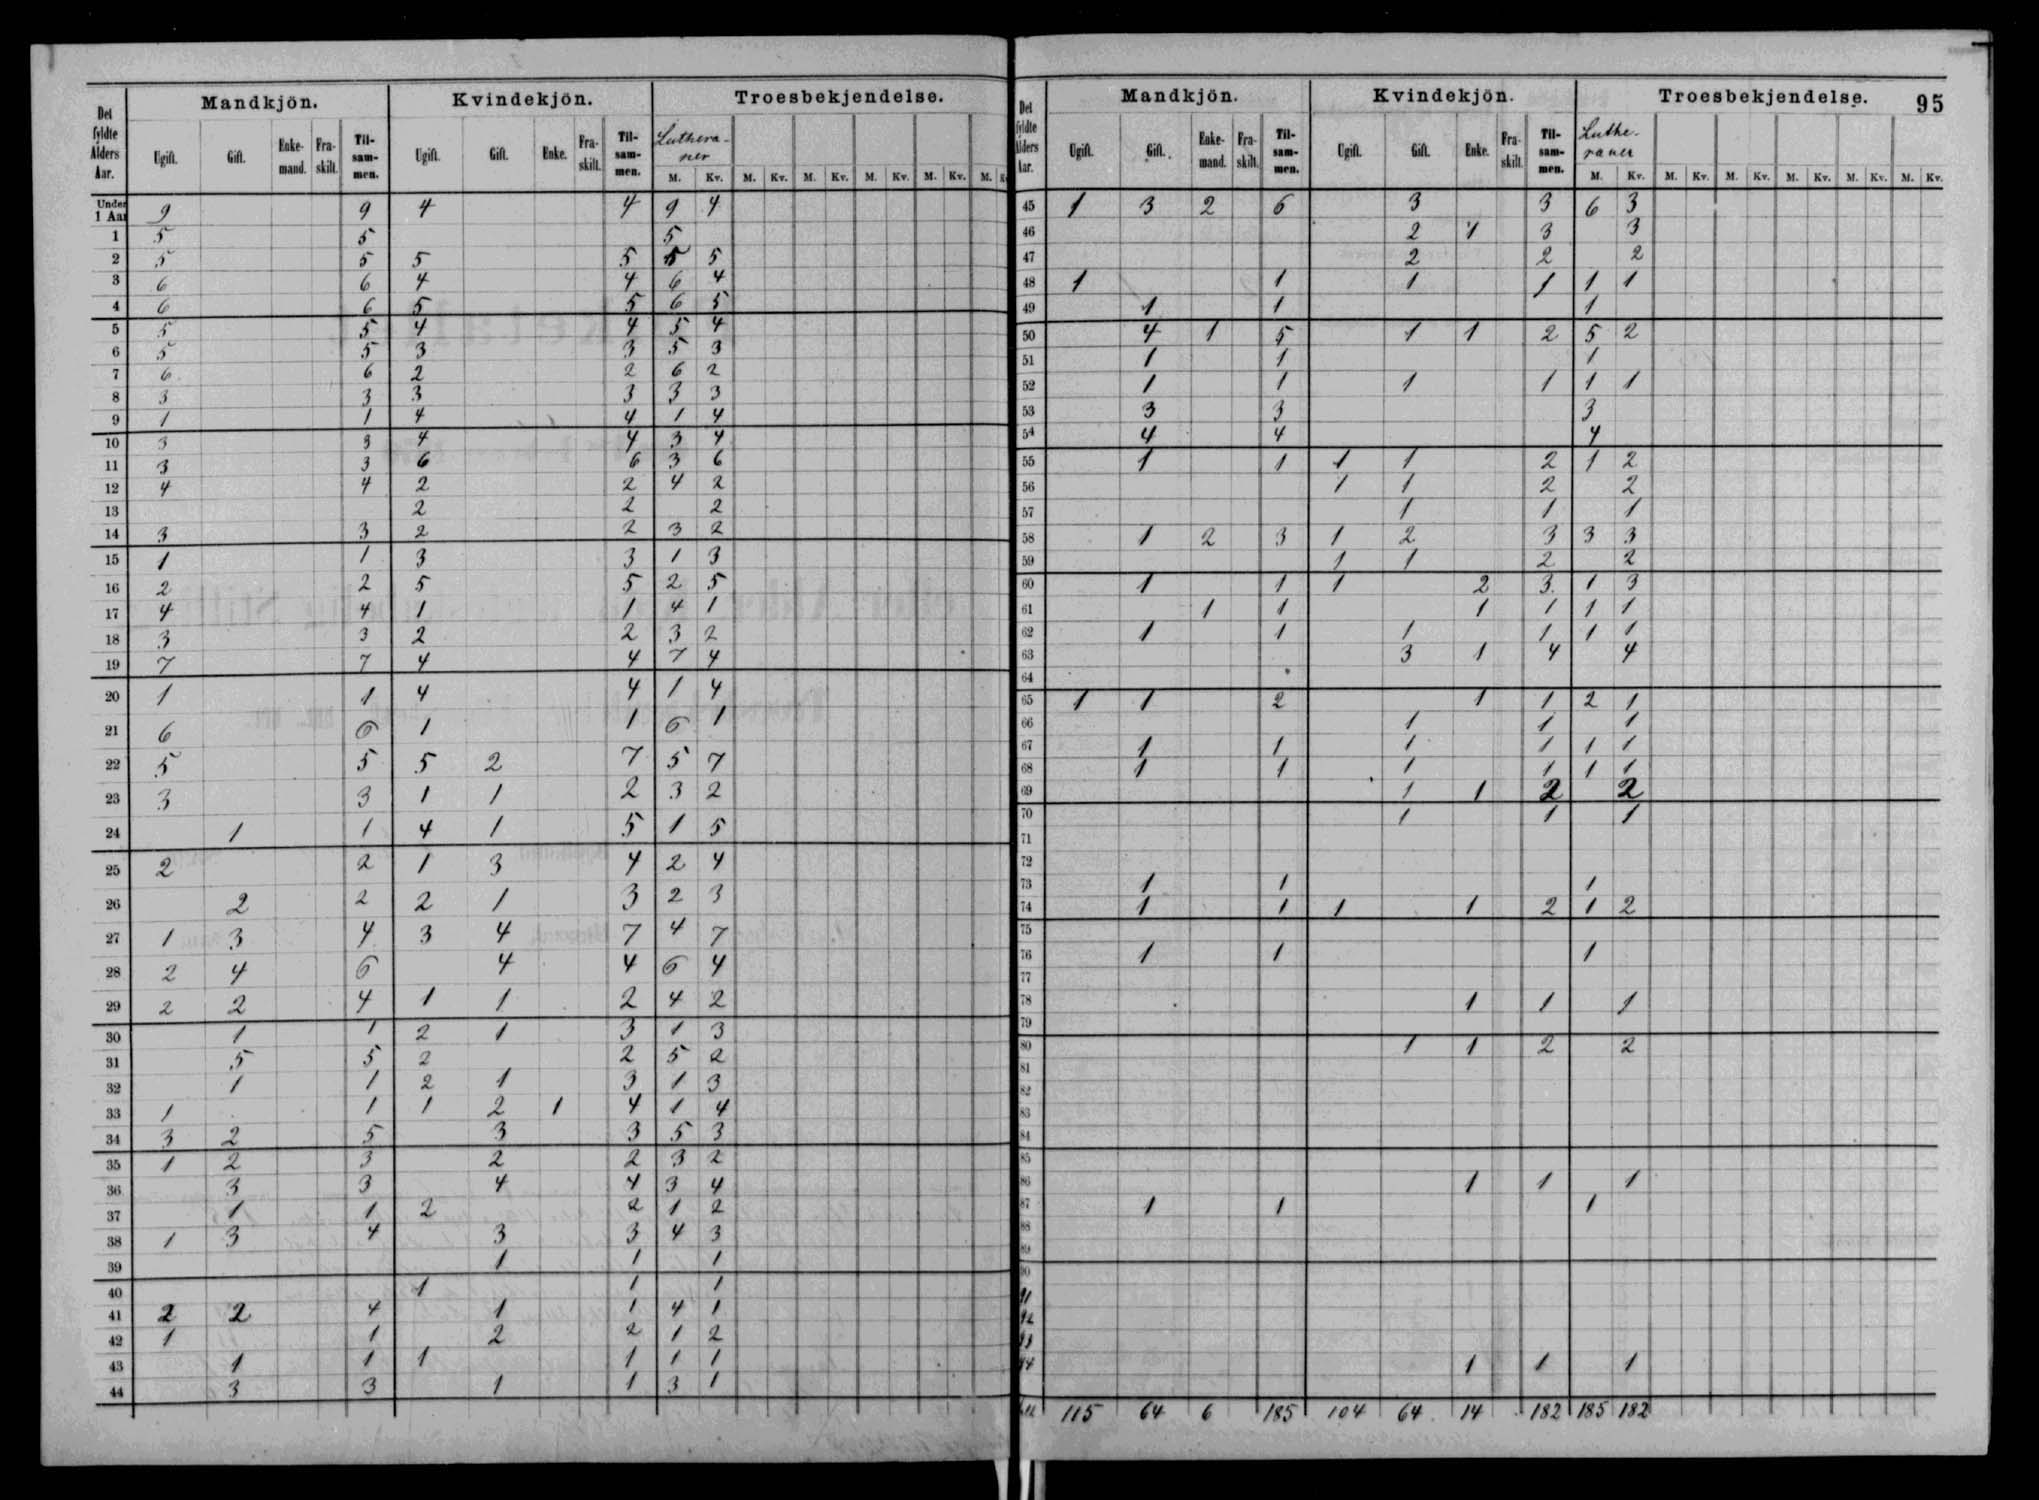 Det fyldte Alders Aar. Mandkjön. Kvindekjön. Troesbekjendelse.
Ugift. Gift. Enke-mand. Fra-skilt. Til-sam-men. Ugift. Gift. Enke. Fra-skilt. Til-sam-men. Luthera-ner
M. Kv. M. Kv. M. Kv. M. Kv. M. Kv. M.
Under 1 Aar 9 9 4 4 9 4
1 5 5 5
2 5 5 5 5 5 5
3 6 6 4 4 6 4
4 6 6 5 5 6 5
5 5 5 4 4 5 4
6 5 5 3 3 5 3
7 6 6 2 2 6 2
8 3 3 3 3 3 3
9 1 1 4 4 1 4
10 3 3 4 4 3 4
11 3 3 6 6 3 6
12 4 4 2 2 4 2
13 2 2 2
14 3 3 2 2 3 2
15 1 1 3 3 1 3
16 2 2 5 5 2 5
17 4 4 1 1 4 1
18 3 3 2 2 3 2
19 7 7 4 4 7 4
20 1 1 4 4 1 4
21 6 6 1 1 6 1
22 5 5 5 2 7 5 7
23 3 3 1 1 2 3 2
24 1 1 4 1 5 1 5
25 2 2 1 3 4 2 4
26 2 2 2 1 3 2 3
27 1 3 4 3 4 7 4 7
28 2 4 6 4 4 6 4
29 2 2 4 1 1 2 4 2
30 1 1 2 1 3 1 3
31 5 5 2 2 5 2
32 1 1 2 1 3 1 3
33 1 1 1 2 1 4 1 4
34 3 2 5 3 3 5 3
35 1 2 3 2 2 3 2
36 3 3 4 4 3 4
37 1 1 2 2 1 2
38 1 3 4 3 3 4 3
39 1 1 1
40 1 1 1
41 2 2 4 1 1 4 1
42 1 1 2 2 1 2
43 1 1 1 1 1 1
44 3 3 1 1 3 1
Det fyldte Alders Aar. Mandkjön. Kvindekjön. Troesbekjendelse. 95
Ugift. Gift. Enke-mand. Fra-skilt. Til-sam-men. Ugift. Gift. Enke. Fra-skilt. Til-sam-men. Luthe-raner
M. Kv. M. Kv. M. Kv. M. Kv. M. Kv. M. Kv.
45 1 3 2 6 3 3 6 3
46 2 1 3 3
47 2 2 2
48 1 1 1 1 1 1
49 1 1 1
50 4 1 5 1 1 2 5 2
51 1 1 1
52 1 1 1 1 1 1
53 3 3 3
54 4 4 4
55 1 1 1 1 2 1 2
56 1 1 2 2
57 1 1 1
58 1 2 3 1 2 3 3 3
59 1 1 2 2
60 1 1 1 2 3 1 3
61 1 1 1 1 1 1
62 1 1 1 1 1 1
63 3 1 4 4
64
65 1 1 2 1 1 2 1
66 1 1 1
67 1 1 1 1 1 1
68 1 1 1 1 1 1
69 1 1 2 2
70 1 1 1
71
72
73 1 1 1
74 1 1 1 1 2 1 2
75
76 1 1 1
77
78 1 1 1
79
80 1 1 2 2
81
82
83
84
85
86 1 1 1
87 1 1 1
88
89
90
91
92
93
94 1 1 1
115 64 6 185 104 64 14 182 185 182